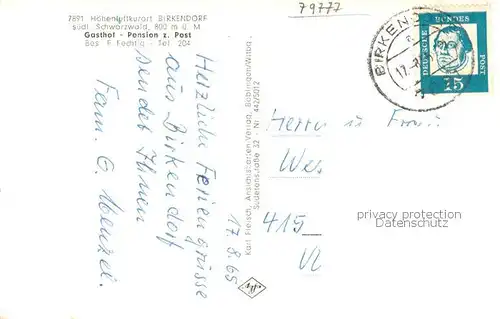 7891 Höhenluftkurort BIRKENDORF
südl. Schwarzwald, 800 m ü. M
Gasthof - Pension z. Post
Bes. F. Fechtig - Tel. 204
79777
BIRKEND
17.
DEUTSCHE BUNDES POST
15
Herzliche Feriengrüsse
aus Birkendorf
sendet Ihnen
Fam. E. Menzel.
17.8.65
Karl Fleisch, Ansichtskarten-Verlag, Böblingen/Württ.
Sudetenstraße 32 - Nr. 442/5012
Herrn u Frau
Wes
415
privacy protection
Datenschutz